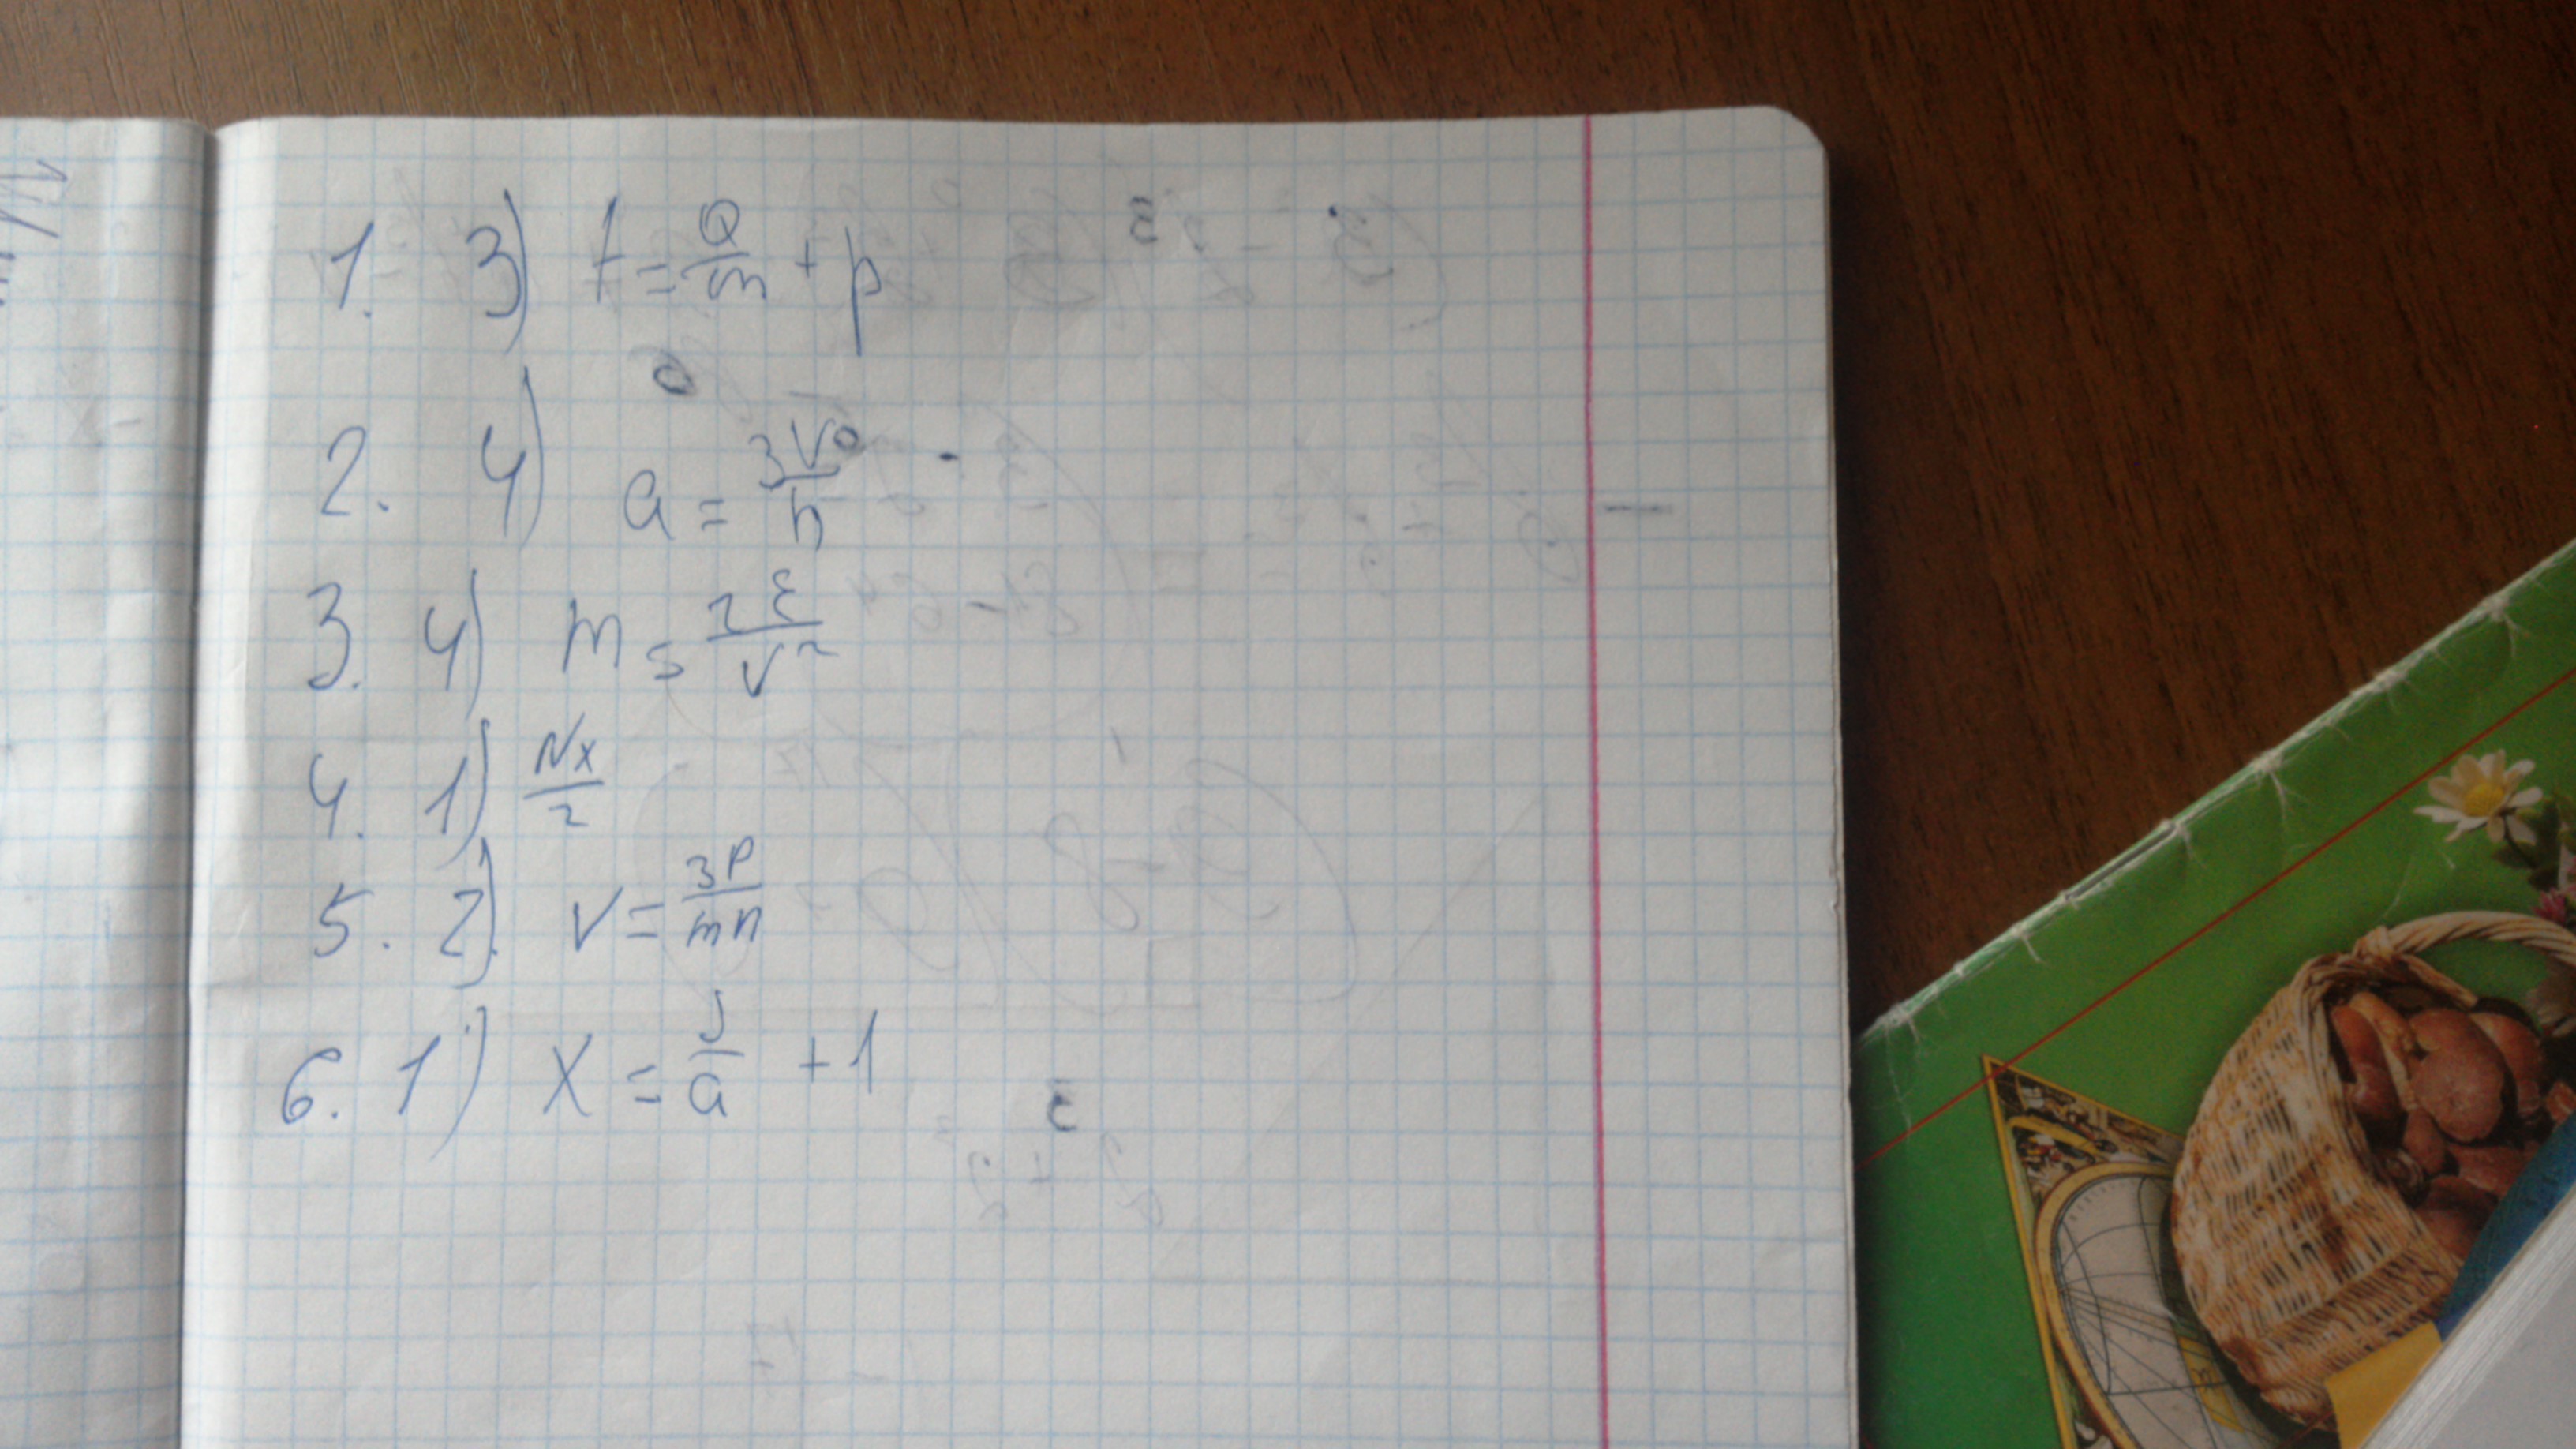 1. 3) t = Q/m + p
2. 4) a = 3V/h
3. 4) m = 2E/V²
4. 1) Nx/2
5. 2). V = 3P/mn
6. 1) X = J/a + 1